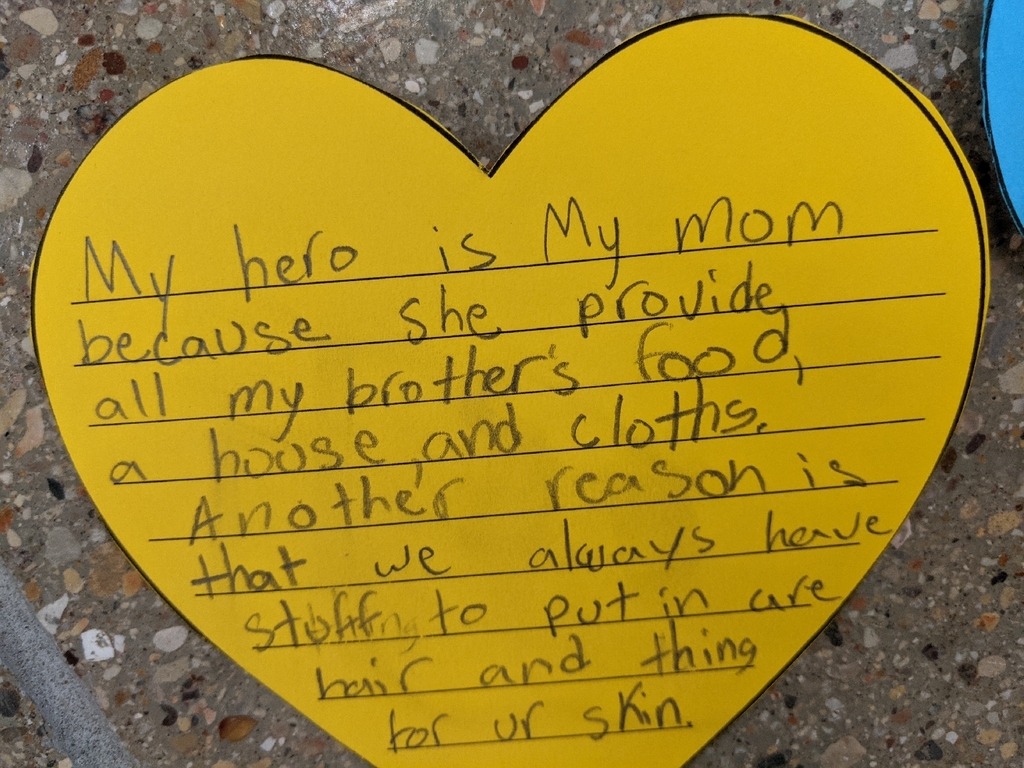 My hero is My mom
because she provide
all my brother's food,
a house, and cloths.
Another reason is
that we always have
stuff to put in are
hair and thing
for ur skin.